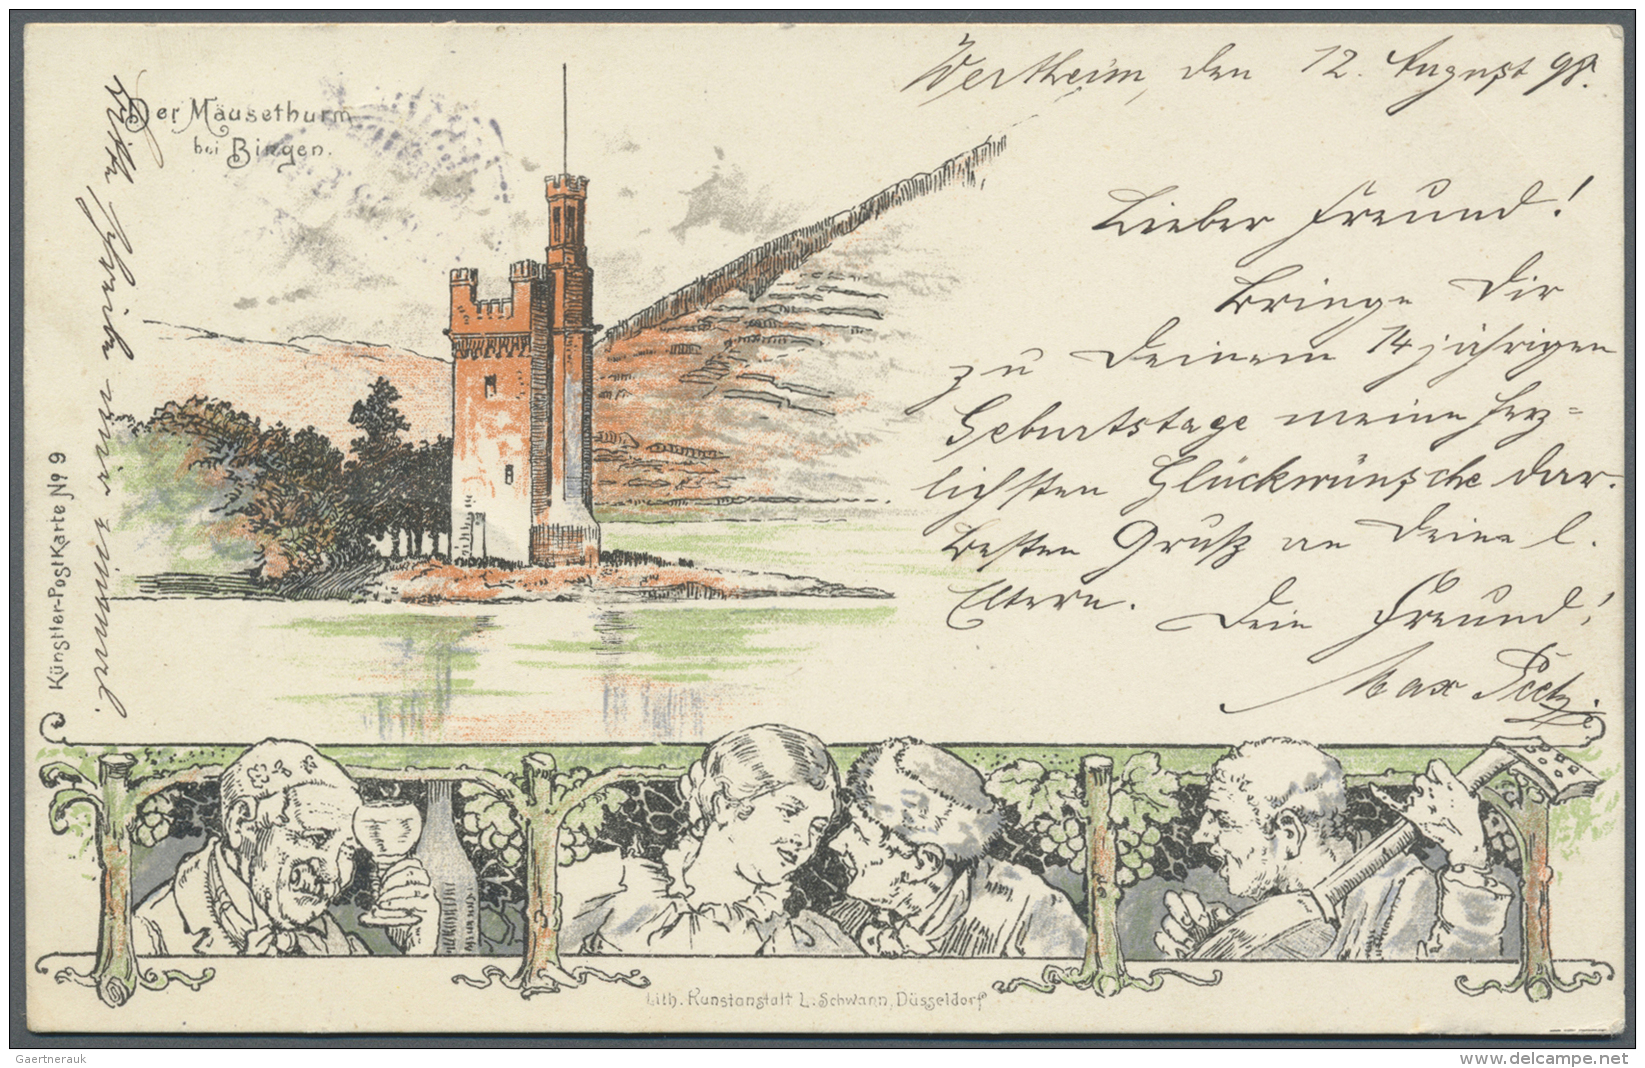 Der Mäusethurm
bei Bingen.
Wertheim, den 12. August 98.
Lieber Freund!
Bringe Dir
zu Deinem 14 jährigen
Geburtstage meine herz=
lichsten Glückwünsche dar.
Besten Gruß an Deine l.
Eltern.
Dein Freund!
Max
Bitte schreibe mir einmal.
Künstler-Postkarte No 9
Lith. Kunstanstalt L. Schwann, Düsseldorf
Gaertnerauk
www.delcampe.net